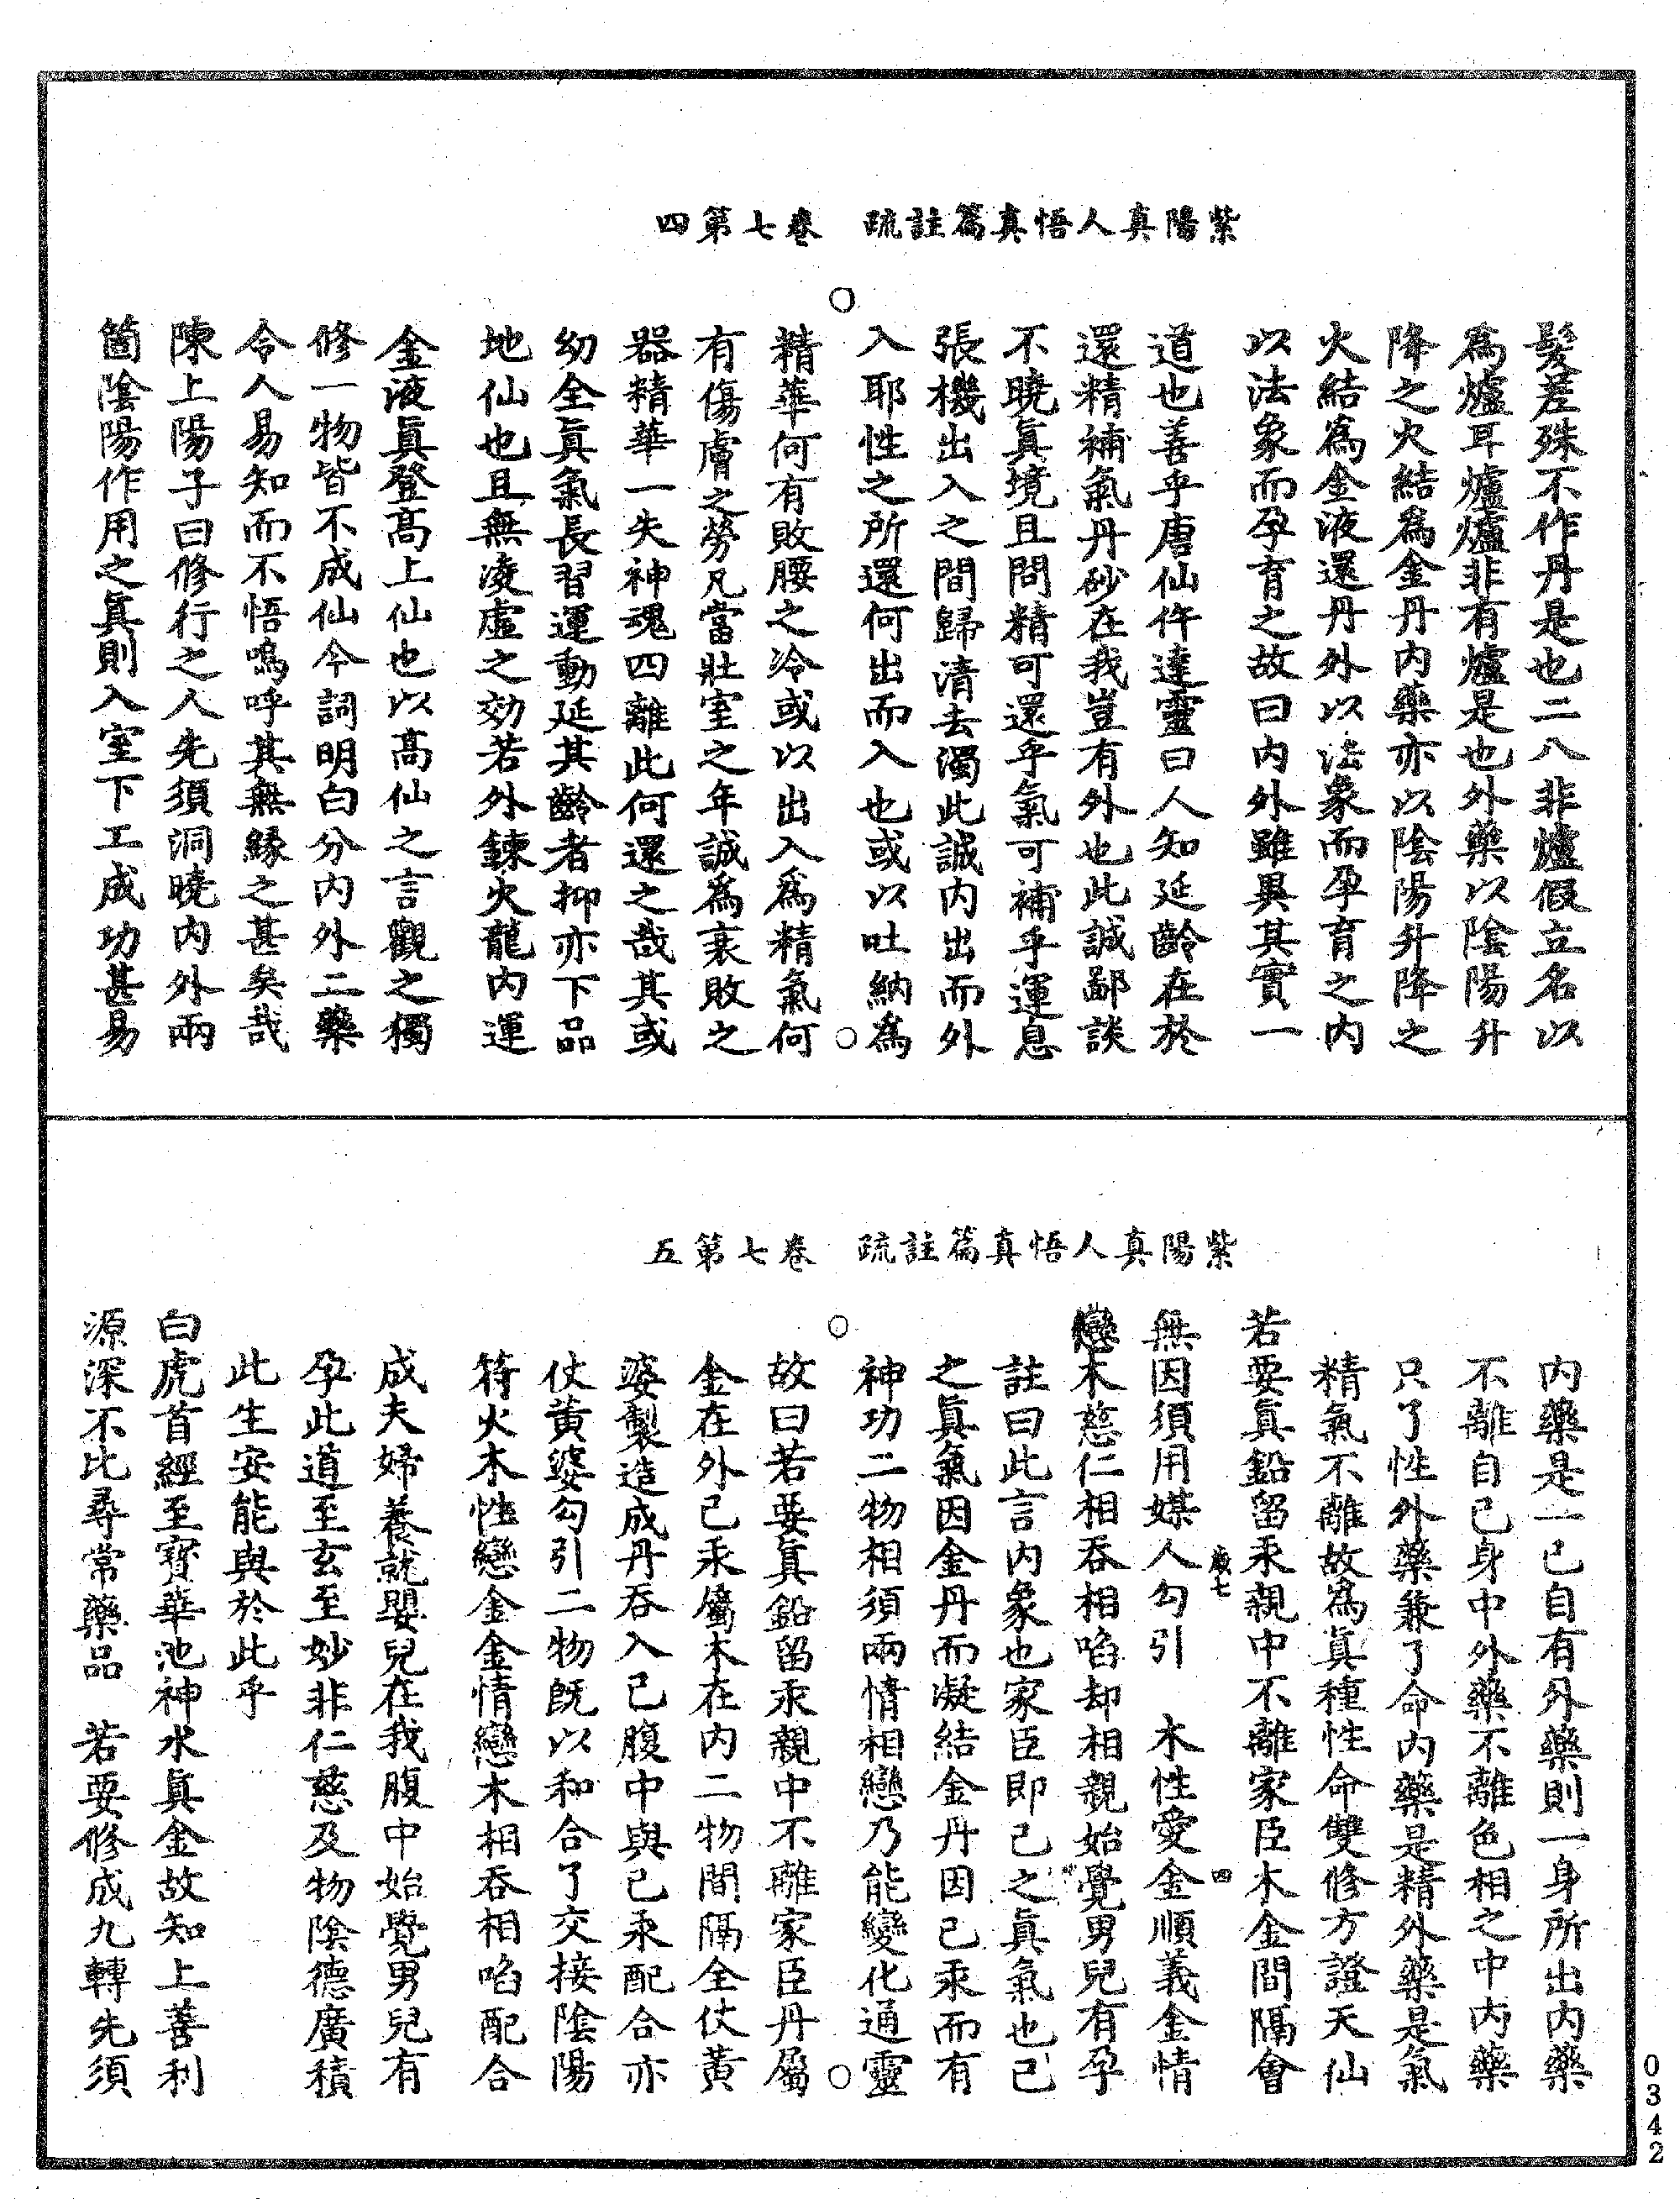 紫陽真人悟真篇註疏　卷七第四
髮差殊不作丹是也二八非爐假立名以
為爐耳爐爐非有爐是也外藥以陰陽升
降之火結為金丹內藥亦以陰陽升降之
火結為金液還丹外以法象而孕育之內
以法象而孕育之故曰內外雖異其實一
道也善乎唐仙仵達靈曰人知延齡在於
還精補氣丹砂在我豈有外也此誠鄙談
不曉真境且問精可還乎氣可補乎運息
張機出入之間歸清去濁此誠內出而外
入耶性之所還何出而入也或以吐納為
精華何有敗腰之冷或以出入為精氣何
有傷膚之勞凡當壯室之年誠為衰敗之
器精華一失神魂四離此何還之哉其或
幼全真氣長習運動延其齡者抑亦下品
地仙也且無凌虛之効若外鍊火龍內運
金液真登高上仙也以高仙之言觀之獨
修一物皆不成仙今詞明白分內外二藥
令人易知而不悟嗚呼其無緣之甚矣哉
陳上陽子曰修行之人先須洞曉內外兩
箇陰陽作用之真則入室下工成功甚易
紫陽真人悟真篇註疏　卷七第五
內藥是一己自有外藥則一身所出內藥
不離自己身中外藥不離色相之中內藥
只了性外藥兼了命內藥是精外藥是氣
精氣不離故為真種性命雙修方證天仙
若要真鉛留汞親中不離家臣木金間隔會
無因須用媒人勾引　木性愛金順義金情
戀木慈仁相吞相啗却相親始覺男兒有孕
註曰此言內象也家臣即己之真氣也己
之真氣因金丹而凝結金丹因己汞而有
神功二物相須兩情相戀乃能變化通靈
故曰若要真鉛留汞親中不離家臣丹屬
金在外己汞屬木在內二物間隔全仗黃
婆製造成丹吞入己腹中與己汞配合亦
仗黃婆勾引二物既以和合了交接陰陽
符火木性戀金金情戀木相吞相啗配合
成夫婦養就嬰兒在我腹中始覺男兒有
孕此道至玄至妙非仁慈及物陰德廣積
此生安能與於此乎
白虎首經至寶華池神水真金故知上善利
源深不比尋常藥品　若要修成九轉先須
0342